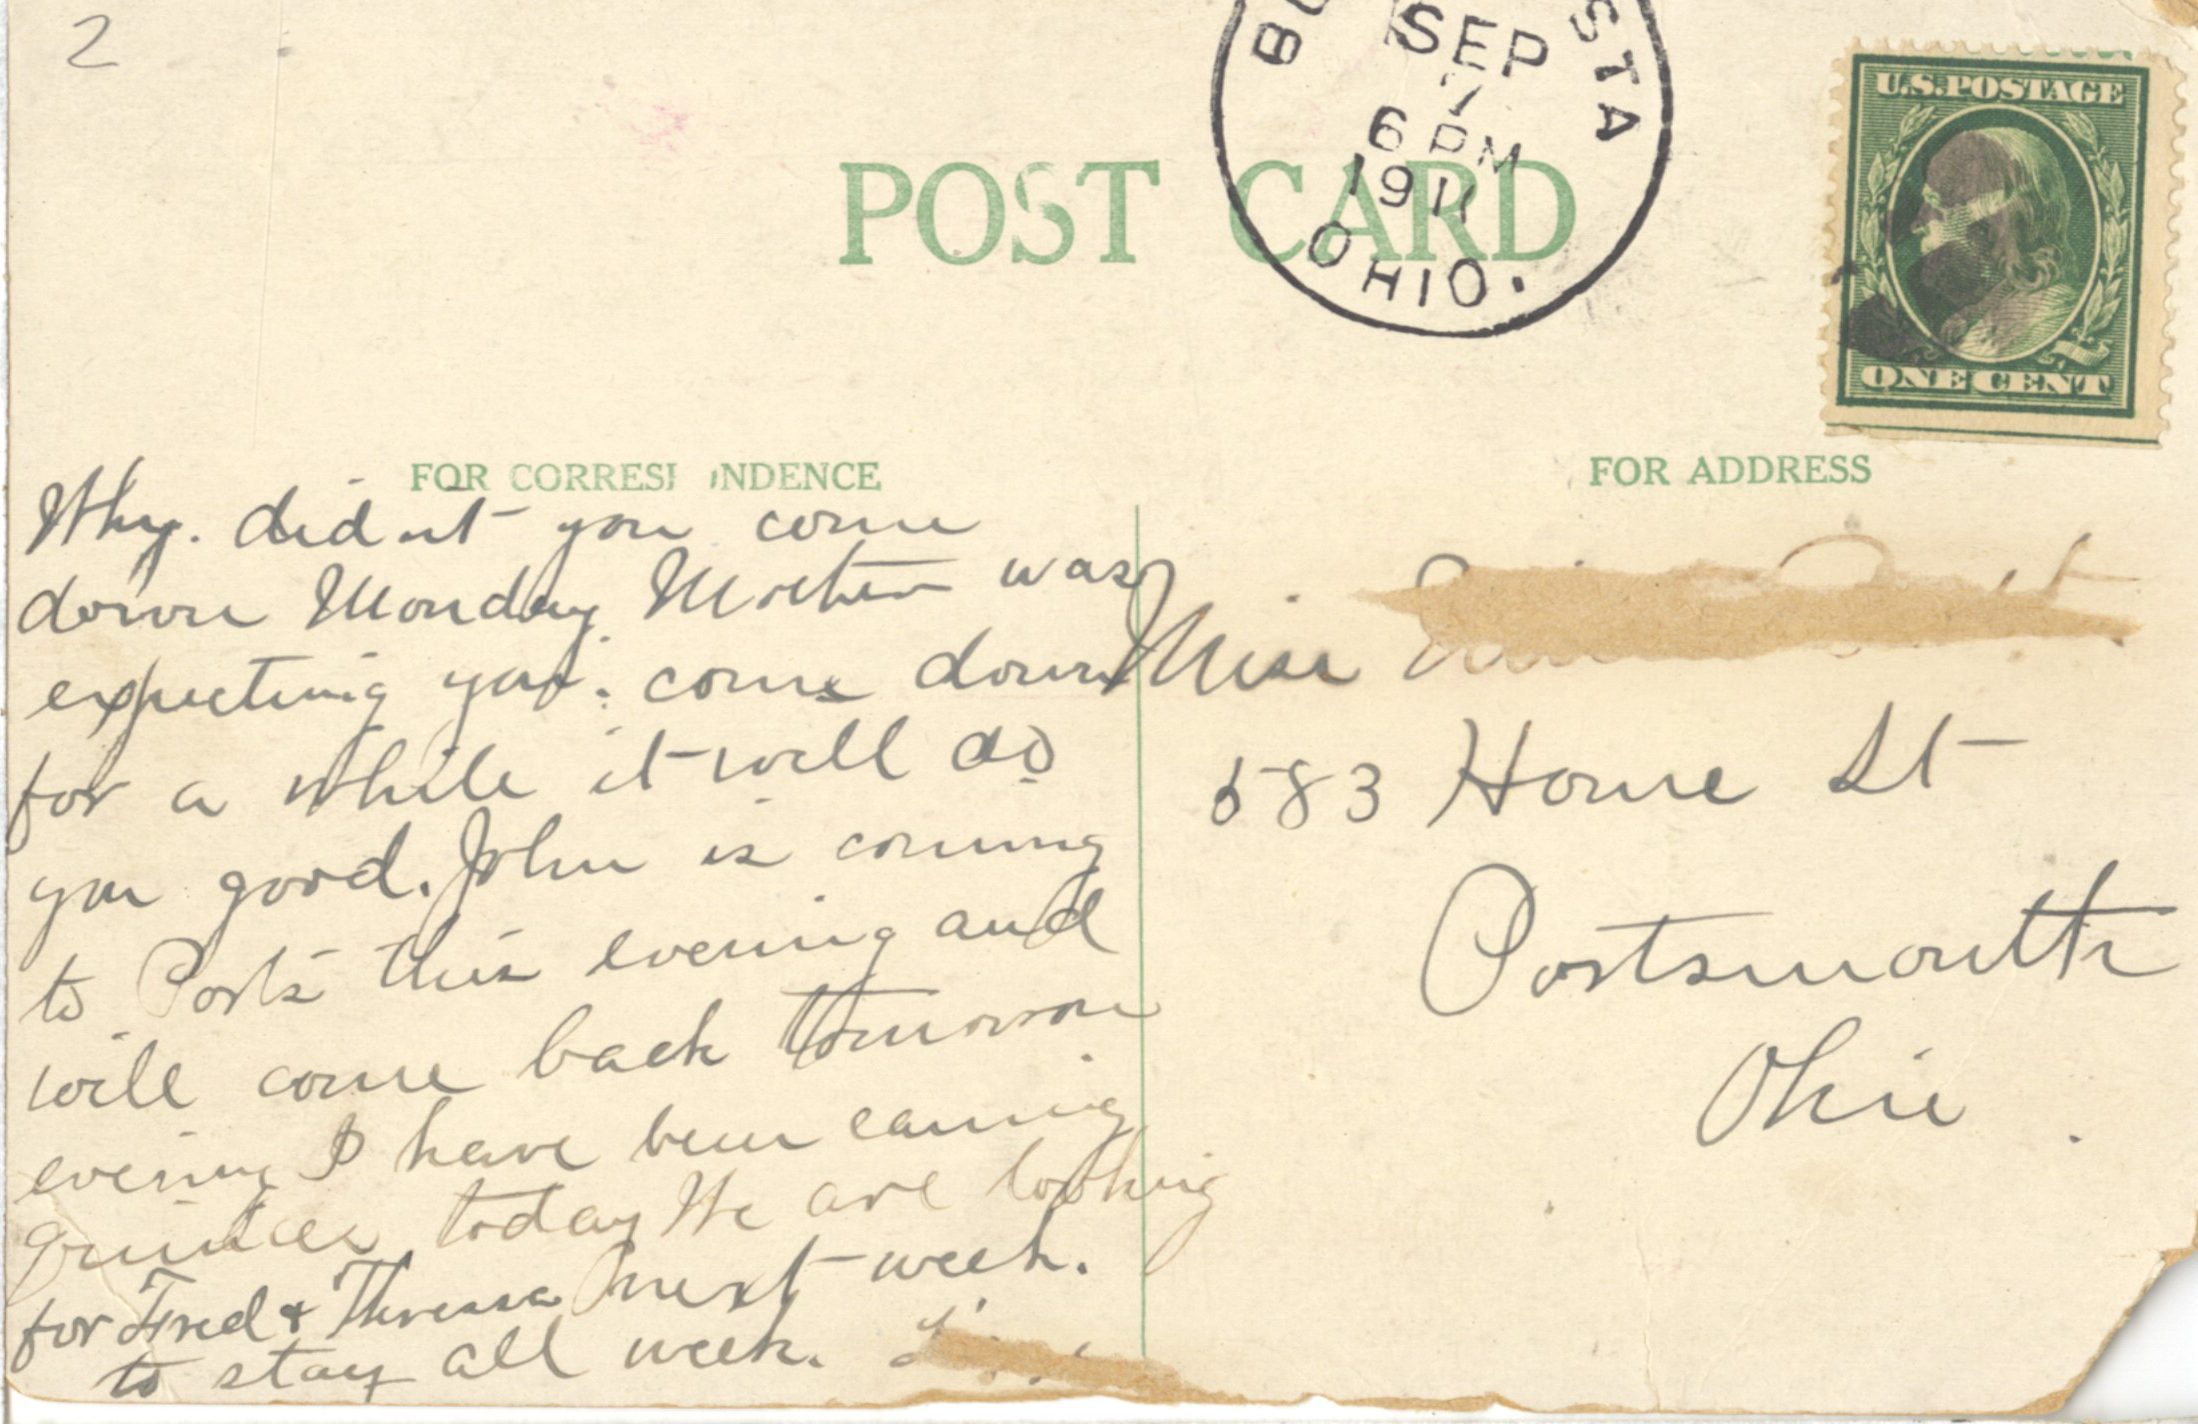 2
SEP
7
6 PM
1911
OHIO.
STA
U.S. POSTAGE
ONE CENT
POST CARD
FOR CORRES NDENCE
FOR ADDRESS
Why. did nt you come
down Monday. Mother was
expecting you. come down
for a while it will do
you good. John is coming
to Ports this evening and
will come back tomorrow
evening I have been canning
quinces today We are looking
for Fred & Theressa next week.
to stay all week.
Miss
583 Home St
Portsmouth
Ohio.